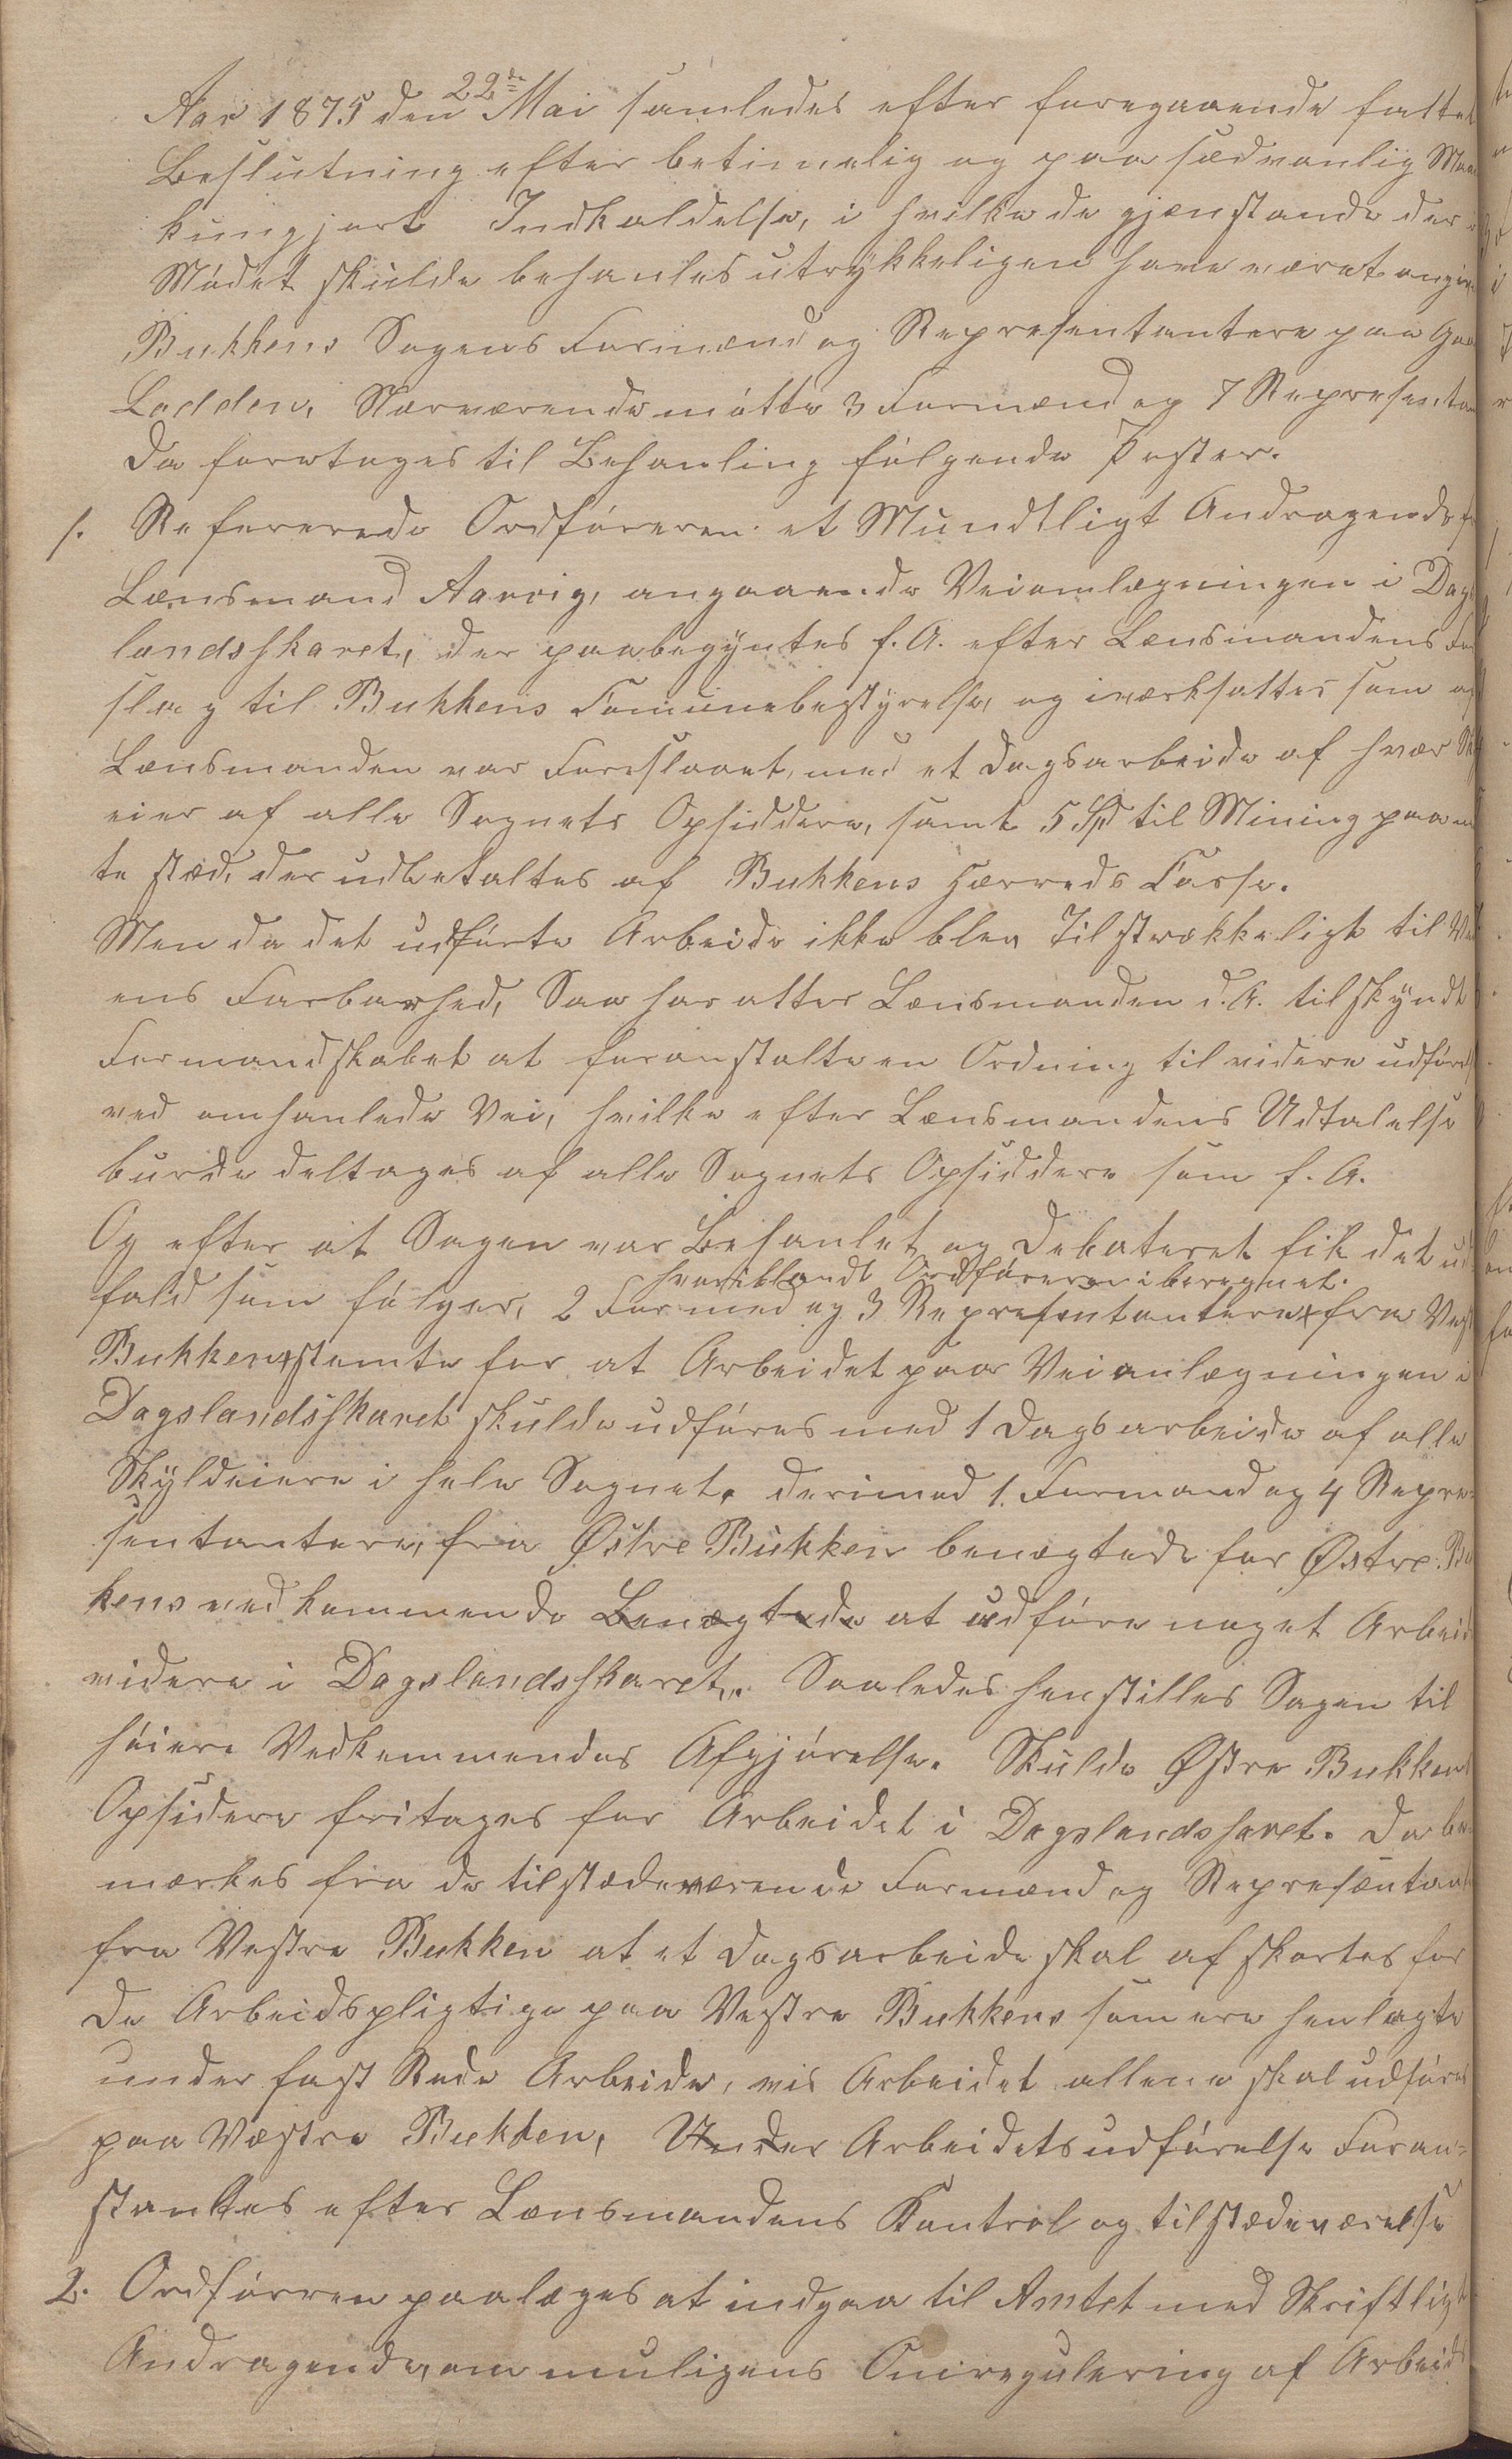 Aar 1875 den 22de Mai samledes efter foregaaende fattet
Beslutning efter betimelig og paa sædvanlig Maa
kungjort Indkaldelse, i hvilke de gjenstande der
Mödet skulde behanles utrykkeligen have været angiv
Bukkens Sogens Formænd og Representantere paa Gaa
Lodden. Nærværende mötte 3 Formænd og 7 Representan
da foretoges til Behanling fölgende Poster.
1. Refererede Ordföreren et Mundtligt Andragende f
Lænsmand Aarvig, angaaende Veiomlægningen i Dag
landsskaret, der paabegyntes f. A. efter Lænsmandens For
slag til Bukkens Comunebestyrelse, og iværksattes som af
Lænsmanden var Foreslaaet, med et Dagsarbeide af hver Sk
eier af alle Sognets Opsiddere, samt 5 Spd til Mining paa
te stæd, der udbetaltes af Bukkens Herreds Casse.
Men da det udförte Arbeide ikke blev Tilstrækkeligt til Vei
ens Farbarhed, Saa har atter Lænsmanden d. A. tilskyndt
Formandskabet at foranstalte en Ordning til videre udförels
ved omhanlede Vei, hvilke efter Lænsmandens Udtalelse
burde deltages af alle Sognets Opsiddere som f. A.
Og efter at Sagen var Behanlet og Debateret fik det ud
hvoriblandt Ordföreren iberegnet.
fald som fölger, 2 Formend og 3 Representantere fra Vest
Bukken stemte for at Arbeidet paa Veianlægningen i
Dagslandsskaret skulde udföres med 1 Dagsarbeide af alle
Skyldeiere i hele Sognet. derimod 1. Formand og 4 Repre-
sentantere, fra Østre Bukken benægtede for Østre Bu
kens vedkommende Benægtede at udföre noget Arbeide
videre i Dagslandsskaret. Saaledes henstilles Sagen til
höiere Vedkommendes Afgjörelse. Skulde Østre Bukkens
Opsidere fritages for Arbeidet i Dagslandsskaret. da be
mærkes fra de tilstædeværende Formænd og Represæntan
fra Vestre Bukken at et Dagsarbeide skal afskortes for
de Arbeidspligtige paa Vestre Bukkens som ere henlagte
under fast Rode Arbeide, vis Arbeidet allene skal udföres
paa Væstre Bukken, Under Arbeidets udförelse Foran-
staltes efter Lænsmandens Kontrol og tilstædeværelse
2. Ordförren paalæges at indgaa til Amtet med Skriftligt
Andragende, om muligens Omregulering af Arbeids